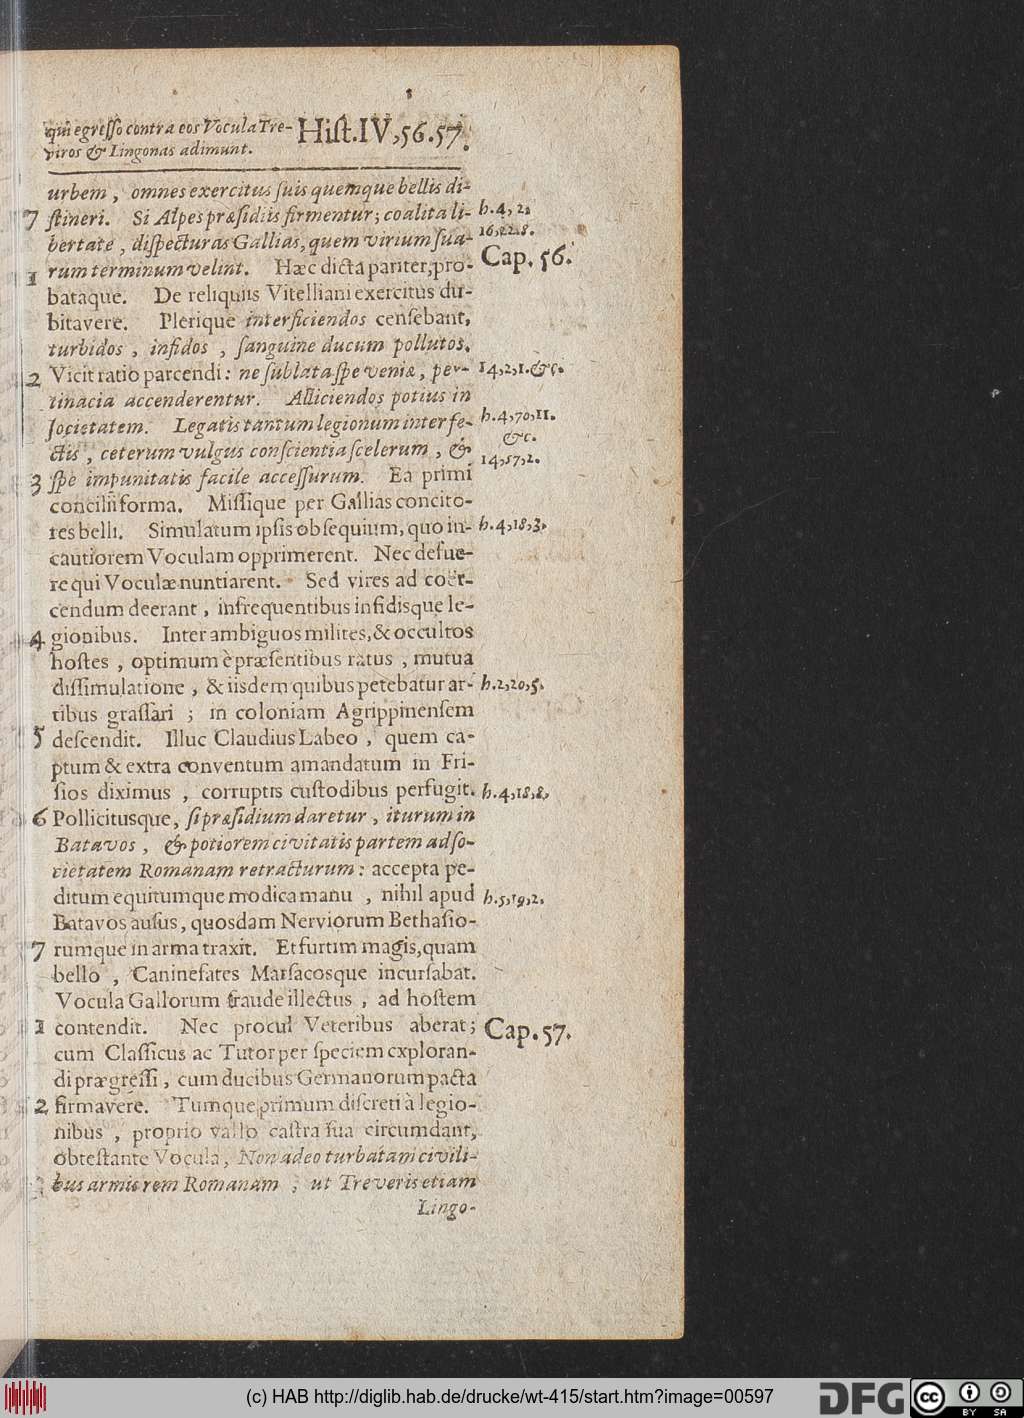 qui egresso contra eos Vocula Tre- Hist. IV, 56. 57.
viros & Lingonas adimunt.
urbem, omnes exercitus suis quemque bellis di-
7 stineri. Si Alpes præsidiis firmentur; coalita li- h. 4, 2,
bertate, dispecturas Gallias, quem virium sua- 16, 22. 8.
1 rum terminum velint. Hæc dicta pariter, pro- Cap. 56.
bataque. De reliquiis Vitelliani exercitus du-
bitavere. Plerique interficiendos censebant,
turbidos, infidos, sanguine ducum pollutos.
2 Vicit ratio parcendi: ne sublata spe veniæ, per- 14, 2, 1. &c.
tinacia accenderentur. Alliciendos potius in
societatem. Legatis tantum legionum interfe- h. 4, 70, 11.
ctis, ceterum vulgus conscientia scelerum, & &c.
3 spe impunitatis facile accessurum. Ea primi 14, 57, 2.
concilii forma. Missique per Gallias concito-
res belli. Simulatum ipsis obsequium, quo in- h. 4, 18, 3.
cautiorem Voculam opprimerent. Nec defue-
re qui Voculæ nuntiarent. Sed vires ad coër-
cendum deerant, infrequentibus infidisque le-
4 gionibus. Inter ambiguos milites, & occultos
hostes, optimum è præsentibus ratus, mutua
dissimulatione, & iisdem quibus petebatur ar- h. 2, 20, 5.
tibus grassari; in coloniam Agrippinensem
5 descendit. Illuc Claudius Labeo, quem ca-
ptum & extra conventum amandatum in Fri-
sios diximus, corruptis custodibus perfugit. h. 4, 18, 8,
6 Pollicitusque, si præsidium daretur, iturum in
Batavos, & potiorem civitatis partem ad so-
cietatem Romanam retracturum: accepta pe-
ditum equitumque modica manu, nihil apud h. 5, 19, 2.
Batavos ausus, quosdam Nerviorum Bethasio-
7 rumque in arma traxit. Et furtim magis, quam
bello, Caninefates Marsacosque incursabat.
Vocula Gallorum fraude illectus, ad hostem
1 contendit. Nec procul Veteribus aberat; Cap. 57.
cum Classicus ac Tutor per speciem exploran-
di prægressi, cum ducibus Germanorum pacta
2 firmavere. Tumque primum discreti à legio-
nibus, proprio vallo castra sua circumdant,
obtestante Vocula, Non adeo turbatam civili-
3 bus armis rem Romanam, ut Treveris etiam
Lingo-
(c) HAB http://diglib.hab.de/drucke/wt-415/start.htm?image=00597
DFG
cc BY SA